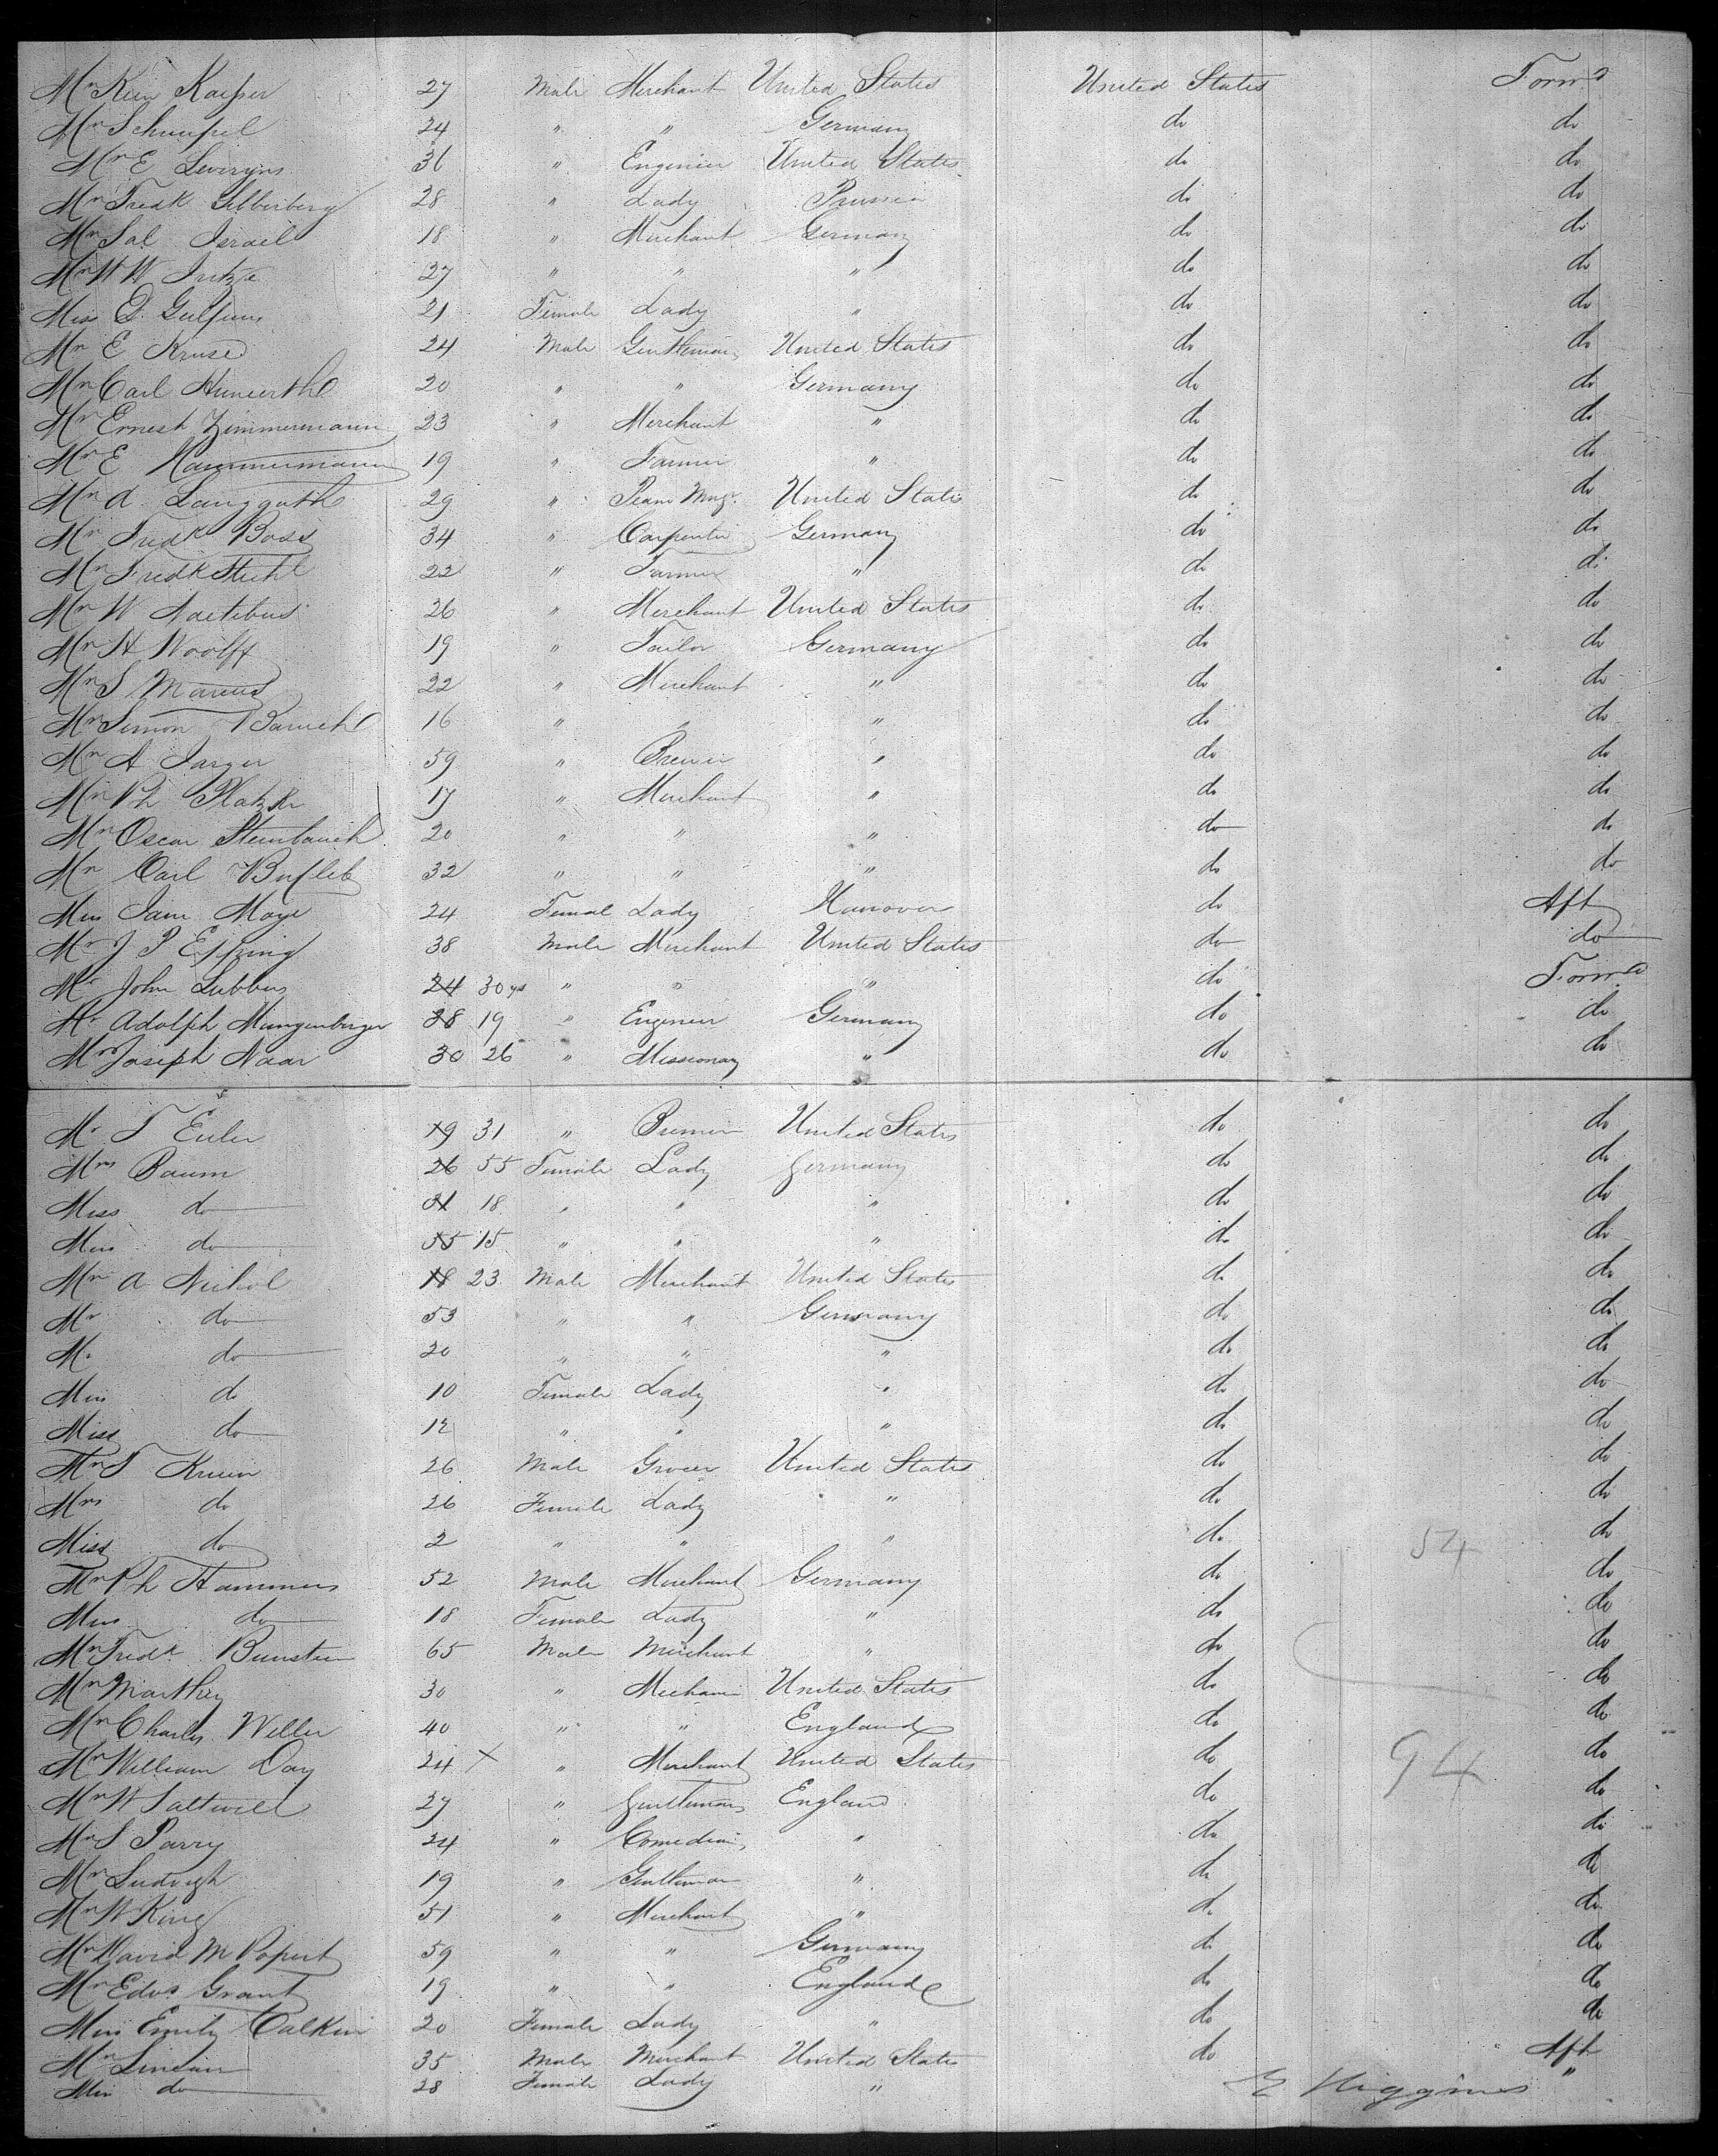 Mr Kaiser 27 Male Merchant United States United States Forwd
Mr Schimpel 24 " " Germany do do
Mr E Severyns 36 " Engineer United States do do
Mr Fredk Silberberg 28 " Lady Prussia do do
Mr Sal Israel 18 " Merchant Germany do do
Mr W W 27 " " " do do
Miss D. 21 Female Lady " do do
Mr E Kruse 24 Male Gentleman United States do do
Mr Carl Hunerth 20 " " Germany do do
Mr Ernest Zimmermann 23 " Merchant " do do
Mr E Hammermann 19 " Farmer " do do
Mr A Langguth 29 " Piano Mnfr. United States do do
Mr Fredk Boss 34 " Carpenter Germany do do
Mr Fredk Stuhl 22 " Farmer " do do
Mr W Naetebus 26 " Merchant United States do do
Mr H Woolff 19 " Tailor Germany do do
Mr S Marcus 22 " Merchant " do do
Mr Simon Baruch 16 " " " do do
Mr A Jarger 59 " Brewer " do do
Mr Ph Platzk 17 " Merchant " do do
Mr Oscar Steinbauch 20 " " " do do
Mr Carl Bufleb 32 " " " do do
Miss Jane Moye 24 Femal Lady Hanover do Aft
Mr J P Epping 38 Male Merchant United States do do
Mr John Lubbers 24 30 yrs " " " do Forwd
Mr Adolph Mungenberger 38 19 " Engineer Germany do do
Mr Joseph Naar 30 26 " Missionary " do do
Mr T Euler 19 31 " Brewer United States do do
Mrs Baum 26 55 Female Lady Germany do do
Miss do 31 18 " " " do do
Miss do 55 15 " " " do do
Mr A Nichol 18 23 Male Merchant United States do do
Mr do 53 " " Germany do do
Mr do 20 " " " do do
Miss do 10 Female Lady " do do
Miss do 12 " " " do do
Mr S Kruin 26 Male Grocer United States do do
Mrs do 26 Female Lady " do do
Miss do 2 " " " do 54 do
Mr Ph Hammers 52 Male Merchant Germany do do
Miss do 18 Female Lady " do do
Mr Fredk Bunstein 65 Male Merchant " do do
Mr Marthey 30 " Mechanic United States do do
Mr Charles Weller 40 " " England do do
Mr William Day 24 X " Merchant United States do 94 do
Mr W Saltwell 27 " Gentleman England do do
Mr S Parry 24 " Comedian " do do
Mr Ludvigh 19 " Gentleman " do do
Mr W King 51 " Merchant " do do
Mr David M Popert 59 " " Germany do do
Mr Edwd Grant 19 " " England do do
Miss Emily Calkin 20 Female Lady " do do
Mr Sinclair 35 Male Merchant United States do Aft
Miss do 28 Female Lady " "
E Higgines